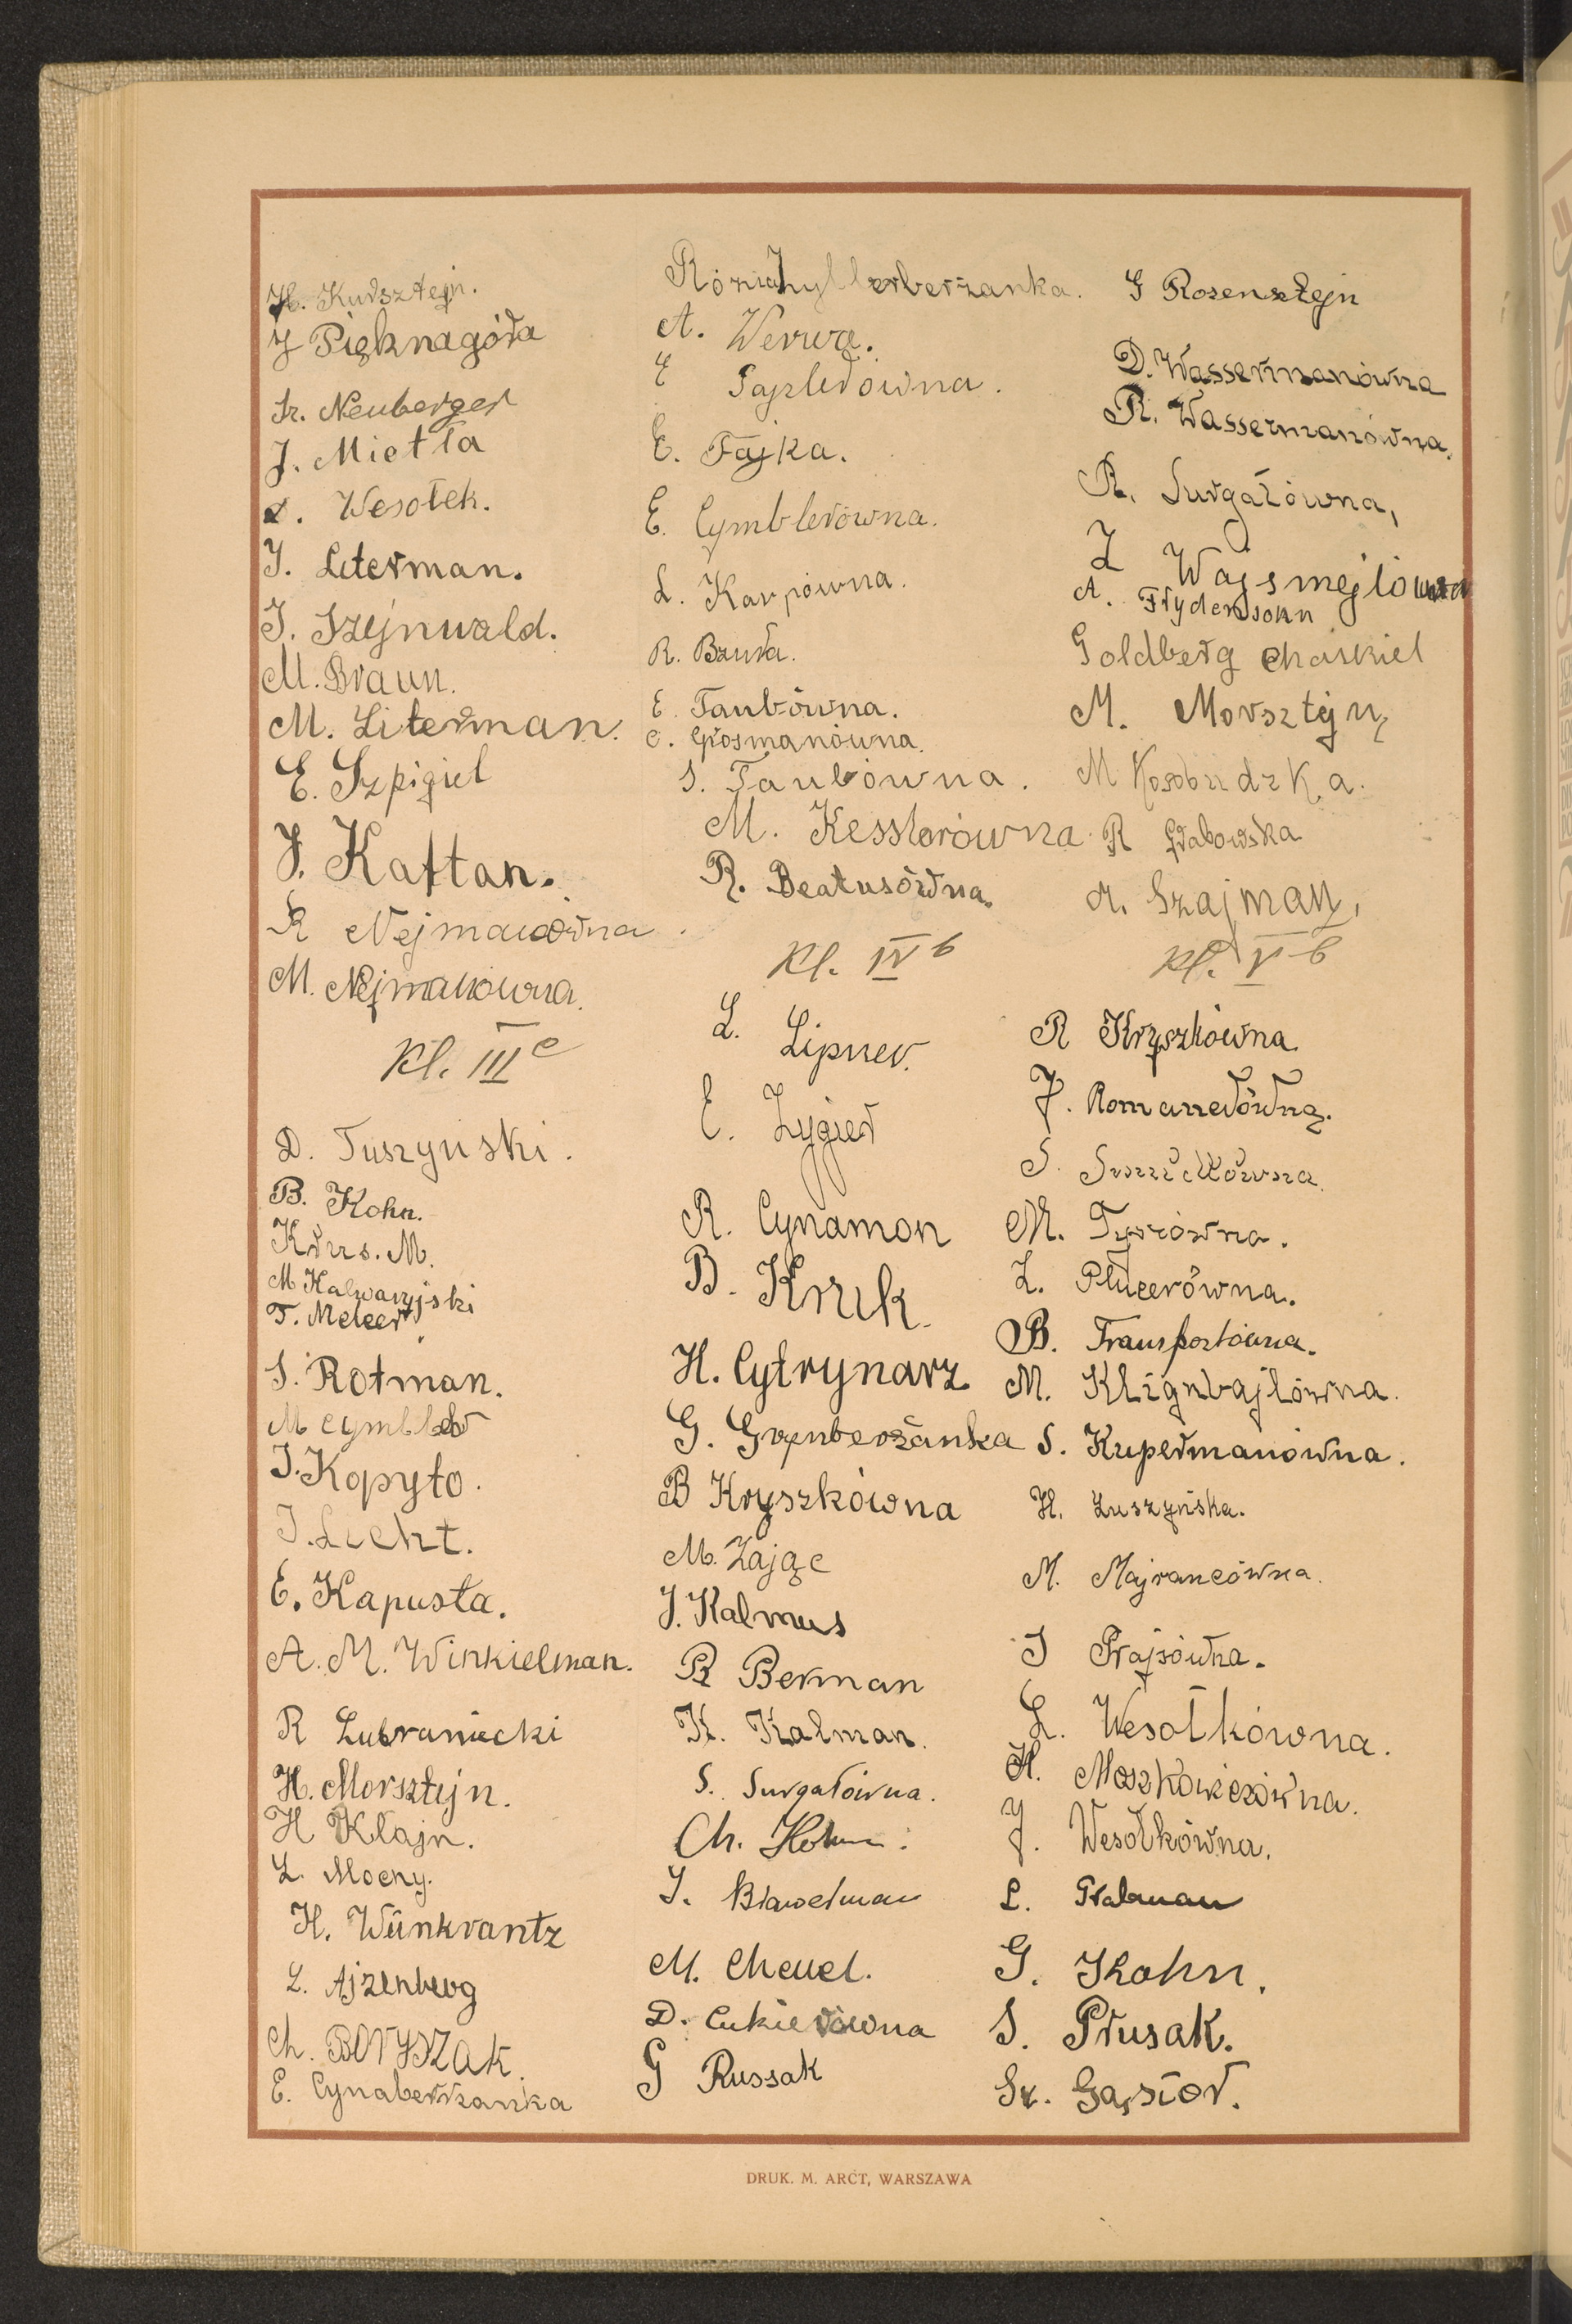 H. Kursztejn.
J Pięknagóra
Sz. Neuberger
J. Mietła
L. Wesołek.
J. Literman.
J. Szejnwald.
M. Braun.
M. Literman.
E. Szpigiel
J. Kaftan.
R Nejmanówna.
M. Nejmanówna.
Kl. III c
D. Tuszyński.
B. Kohn.
Krus. M.
M Kalwaryjski
T. Melcer.
S. Rotman.
M Cymbler
J. Kopyto.
J. Licht.
E. Kapusta.
A. M. Winkielman.
R Lubraniecki
H. Morsztejn.
H Klajn.
L. Mocny.
H. Winkrantz
L. Ajzenberg
Ch. Boryszak.
E. Cynaberżanka
A. Werwa.
E Pajzlerówna.
E. Fajka.
E. Cymblerówna.
L. Karpówna.
R. Bzura.
E. Taubówna.
C. Grosmanówna.
S. Taubówna.
M. Kesslerówna.
R. Beatusówna.
Kl. IV b
L. Lipner.
E. Zygier
R. Cynamon
B. Kruk.
H. Cytrynarz
G. Grynberżanka
B Kryszkówna
M. Zając
J. Kalmus
R Berman
K. Kalman.
S. Surgałówna.
Ch. Kohn.
J. Bławelman
M. Chenel.
D. Cukierówna
G Russak
G Rosensztejn
D. Wassermanówna
R. Wassermanówna.
R. Surgałówna,
Z Wajsmejlówna
A. Frydensohn
Goldberg Chaskiel
M. Morsztejn
M Kosobudzka.
R Grabowska
A. Szajman,
Kl. V b
R Kryszkówna.
J. Romanerówna.
M. Tyrówna.
L. Plucerówna.
B. Transportówna.
M. Klignbajlówna.
S. Kupermanówna.
H. Łuszyńska.
M. Majrancówna.
J Prajsówna.
L. Wesołkówna.
H. Moszkowiczówna.
J. Wesołkówna.
L. Grabman
G. Kohn.
S. Prusak.
Sz. Gąsior.
DRUK. M. ARCT, WARSZAWA